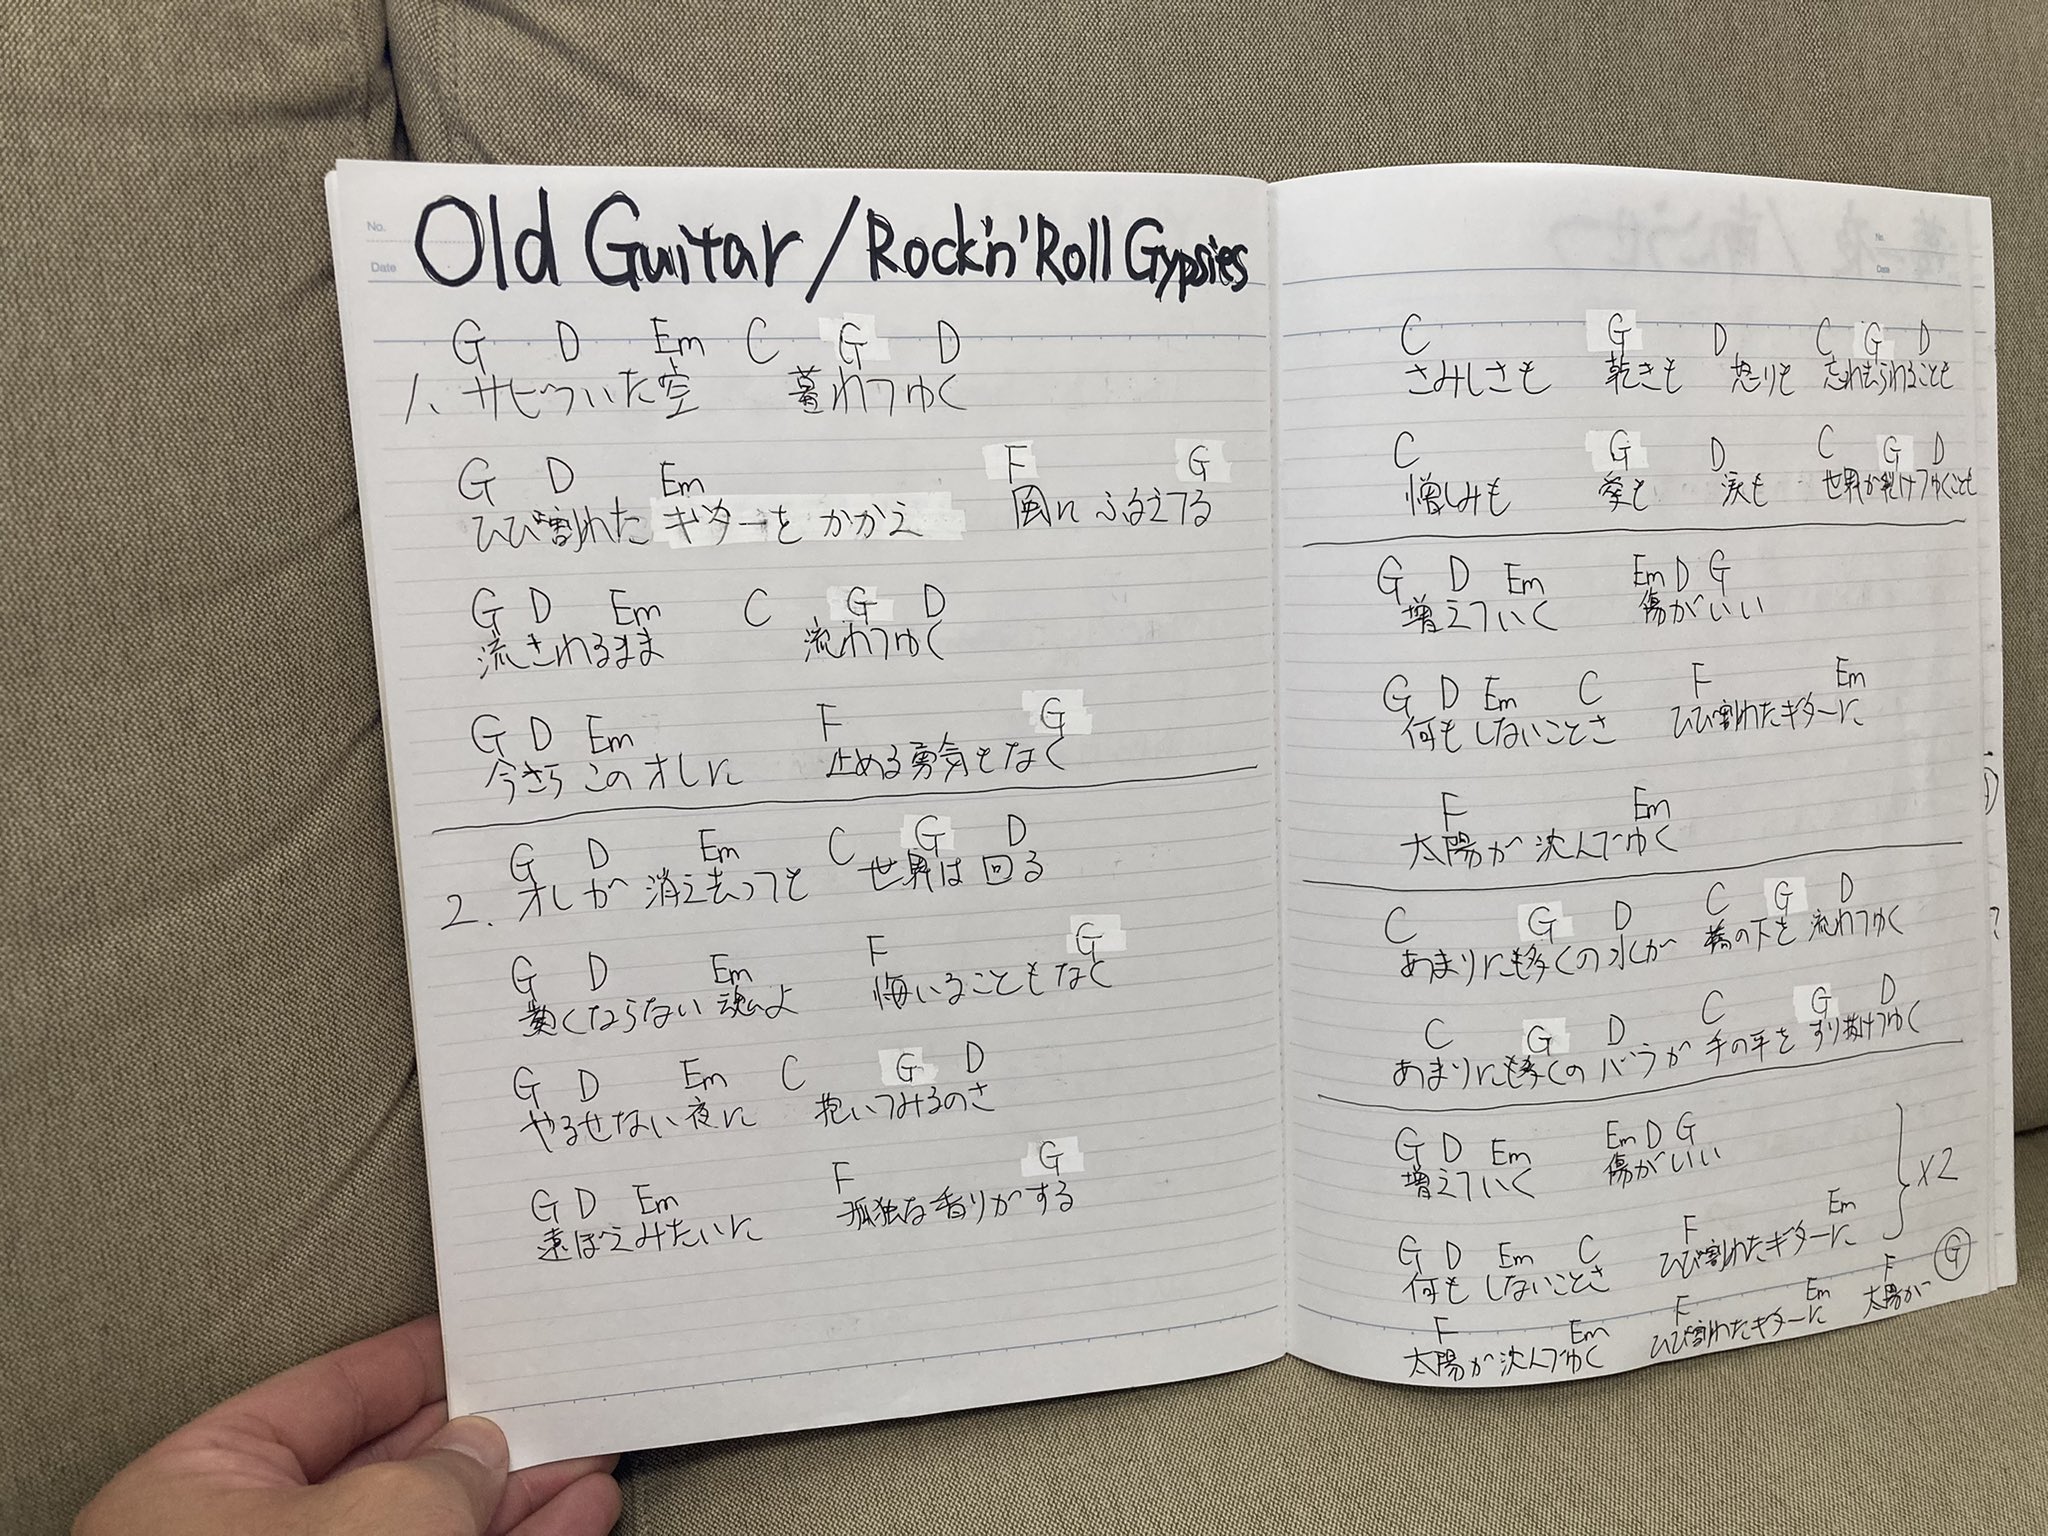 No.
Date
Old Guitar / Rock'n' Roll Gypsies
G D Em C G D
1. サビついた空 暮れてゆく
G D Em F G
ひび割れた ギターを かかえ 風に ふるえてる
G D Em C G D
流されるまま 流れてゆく
G D Em F G
今さら このオレに 止める勇気もなく
G D Em C G D
2. オレが 消え去っても 世界は 回る
G D Em F G
くならない 魂よ 悔いることもなく
G D Em C G D
やるせない 夜に 抱いてみるのさ
G D Em F G
遠ぼえみたいに 孤独な香りがする
No.
Date
C G D C G D
さみしさも 乾きも 怒りも 忘れ去られることも
C G D C G D
憎しみも 愛も 涙も 世界が裂けてゆくことも
G D Em Em D G
増えていく 傷がいい
G D Em C F Em
何も しないことさ ひび割れたギターに
F Em
太陽が 沈んでゆく
C G D C G D
あまりにも多くの 水が 橋の下を 流れてゆく
C G D C G D
あまりにも多くの バラが 手の平を すり抜けてゆく
G D Em Em D G
増えていく 傷がいい
×2
G D Em C F Em
何も しないことさ ひび割れたギターに
F Em F Em F G
太陽が 沈んでゆく ひび割れたギターに 太陽が